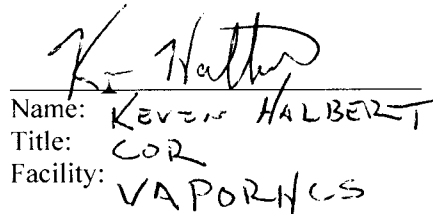 Name: KEVIN HALBERT
Title: COR
Facility: VAPORHCS